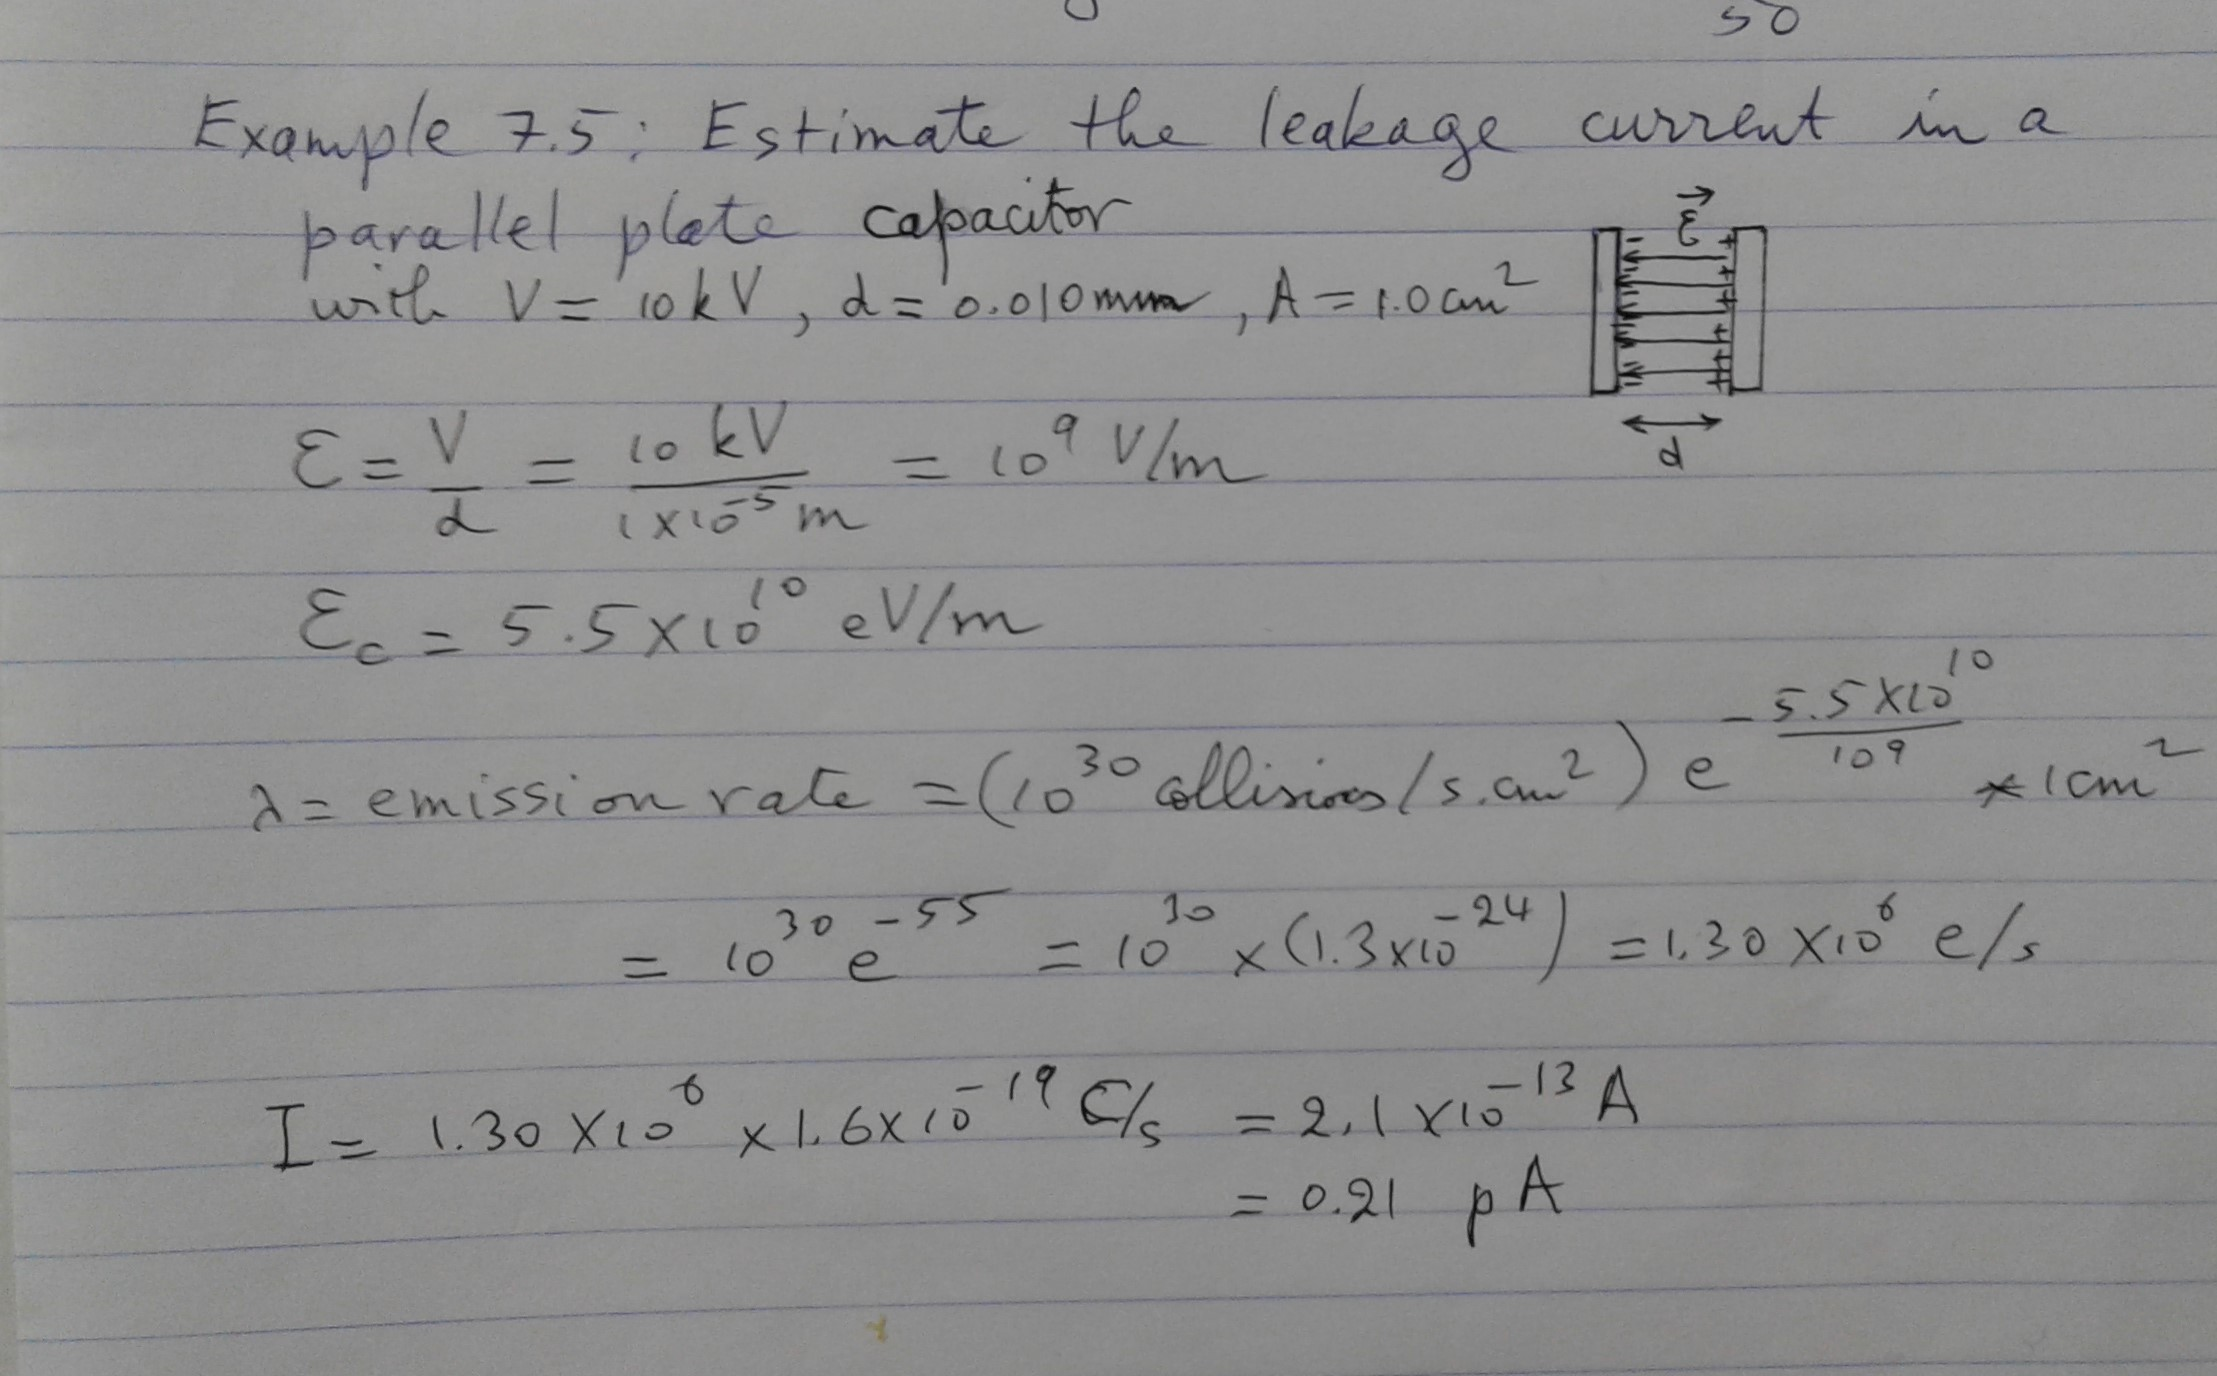 50
Example 7.5: Estimate the leakage current in a
parallel plate capacitor
with V = 10 kV, d = 0.010 mm, A = 1.0 cm²
ℰ⃗
d
ℰ = V/d = 10 kV / 1×10⁻⁵ m = 10⁹ V/m
ℰc = 5.5×10¹⁰ eV/m
λ = emission rate = (10³⁰ collisions/s.cm²) e^(-5.5×10¹⁰/10⁹) * 1cm²
= 10³⁰ e⁻⁵⁵ = 10³⁰ × (1.3×10⁻²⁴) = 1.30 ×10⁶ e/s
I = 1.30 ×10⁶ × 1.6×10⁻¹⁹ C/s = 2.1 ×10⁻¹³ A
= 0.21 pA